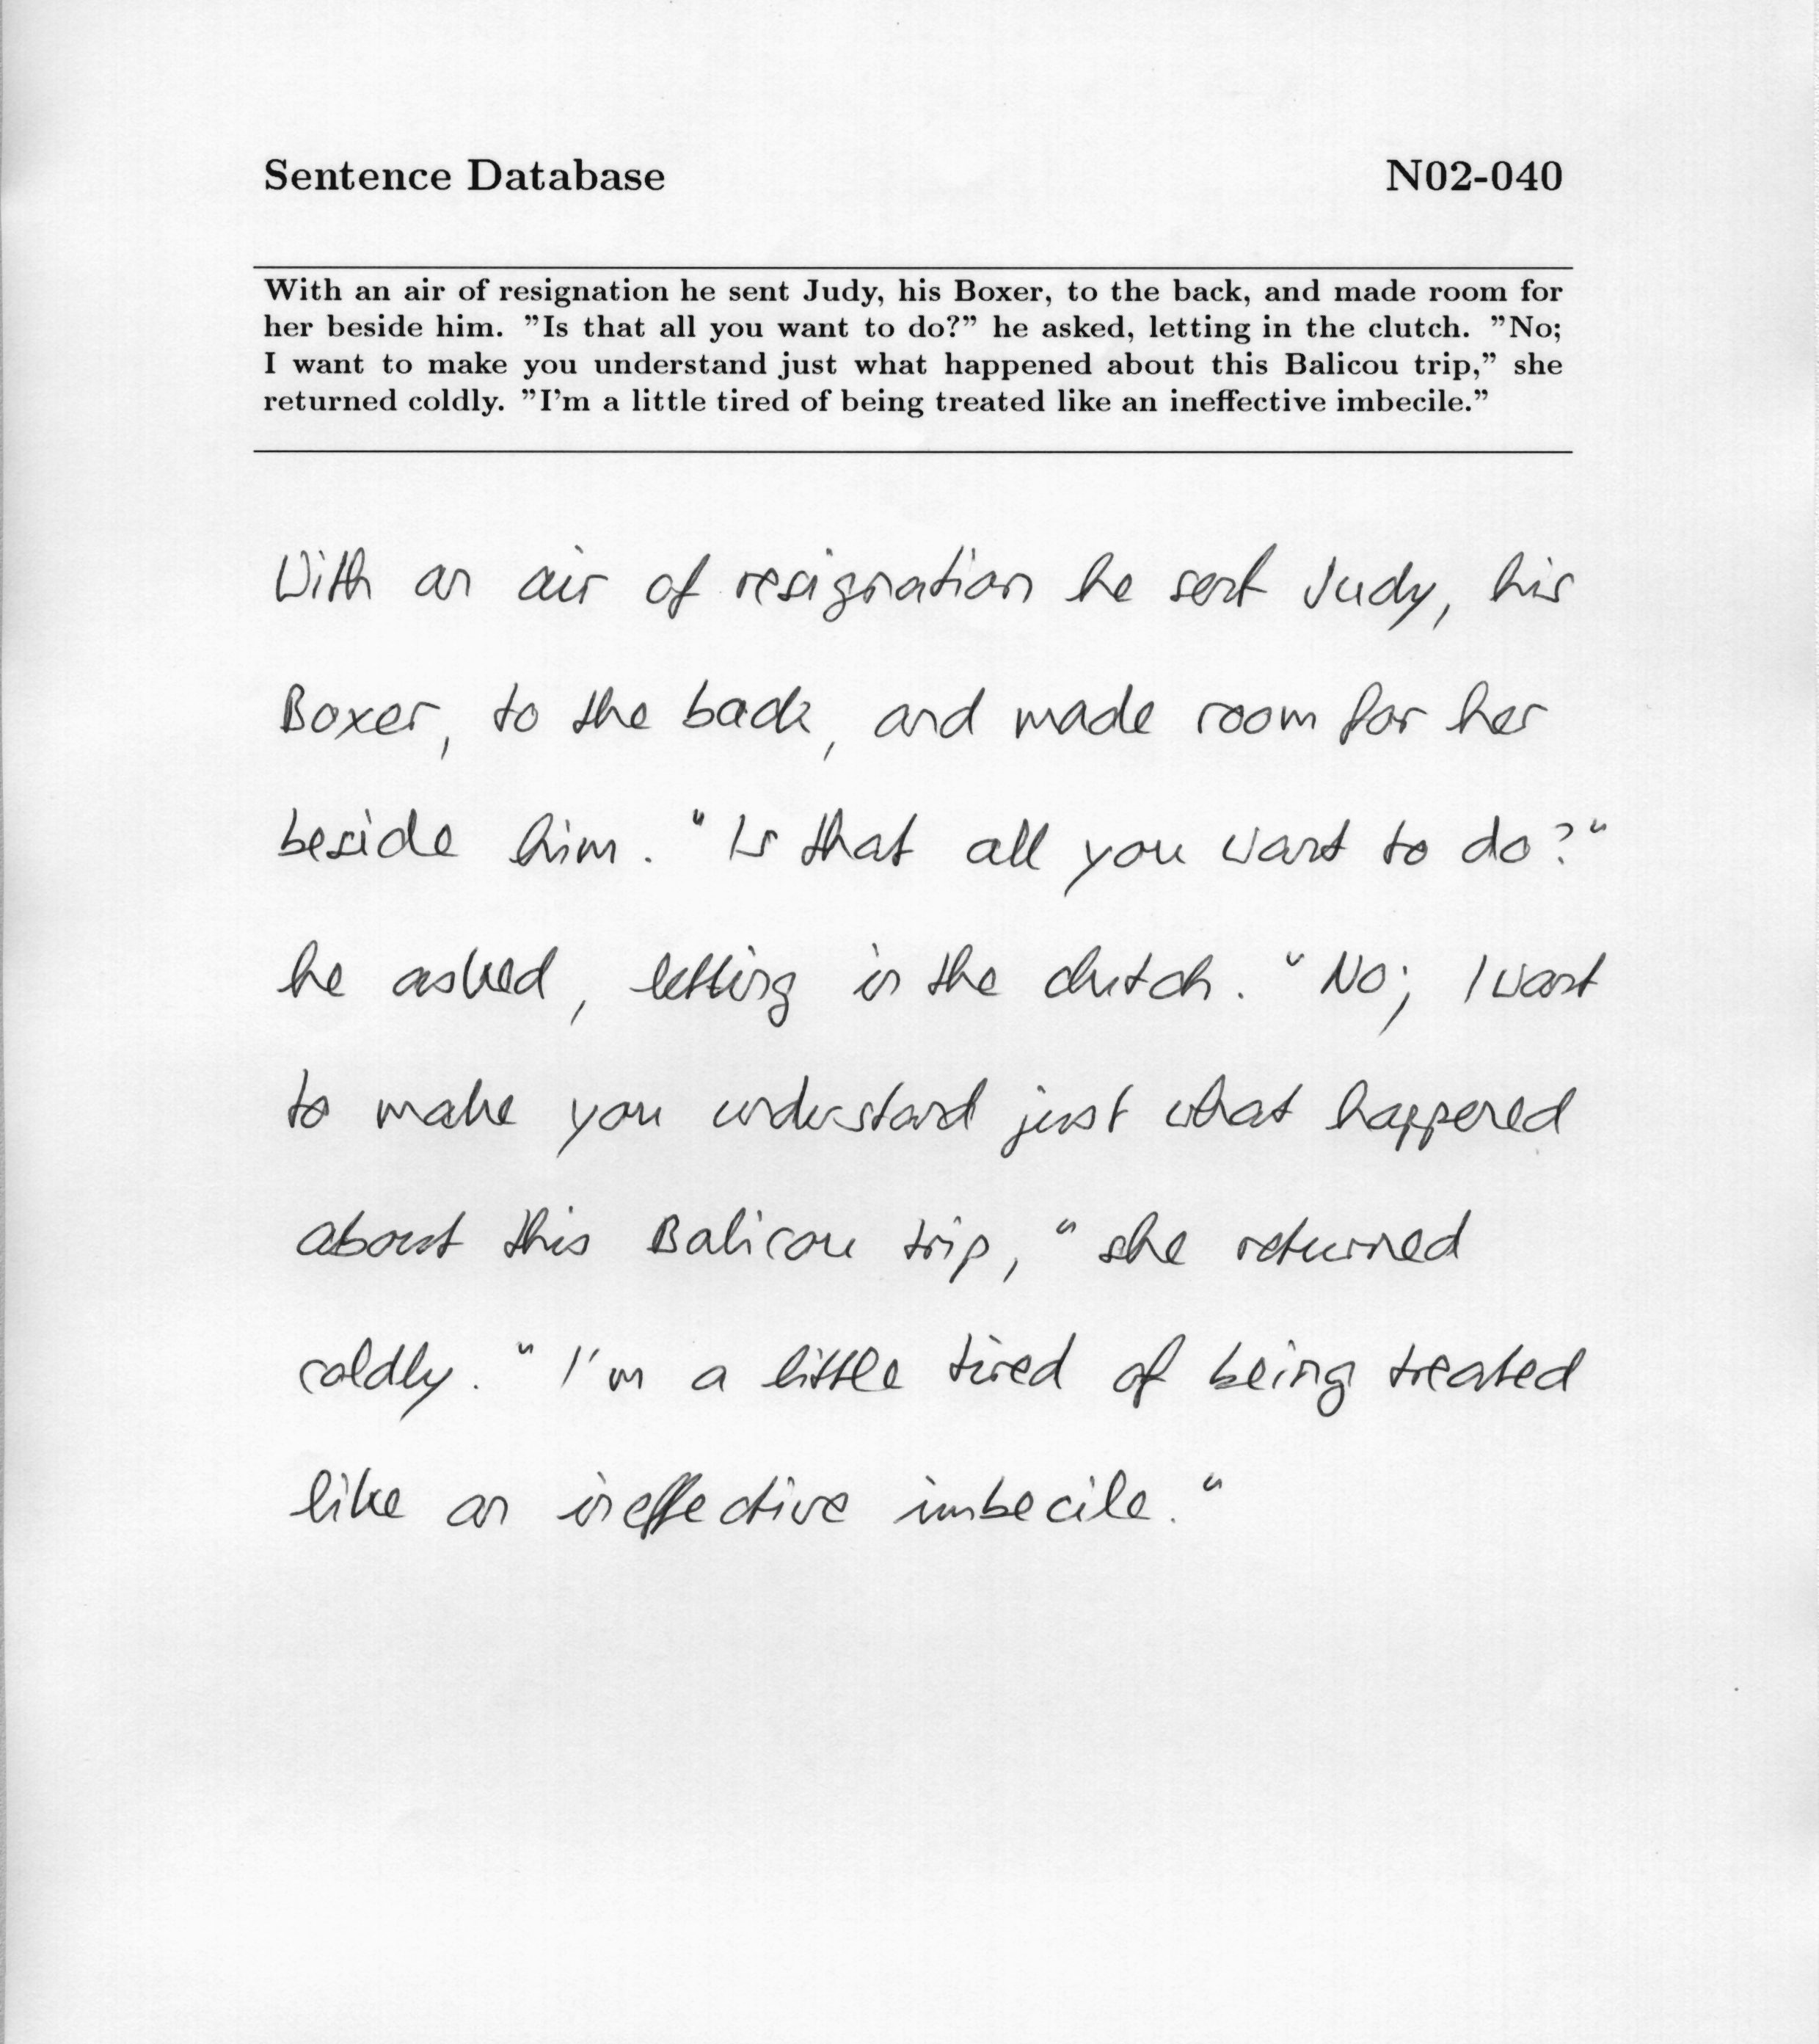 Sentence Database N02-040
With an air of resignation he sent Judy, his Boxer, to the back, and made room for
her beside him. ”Is that all you want to do?” he asked, letting in the clutch. ”No;
I want to make you understand just what happened about this Balicou trip,” she
returned coldly. ”I'm a little tired of being treated like an ineffective imbecile.”
With an air of resignation he sent Judy, his
Boxer, to the back, and made room for her
beside him. "Is that all you want to do?"
he asked, letting in the clutch. "No; I want
to make you understand just what happened
about this Balicou trip," she returned
coldly. "I'm a little tired of being treated
like an ineffective imbecile."